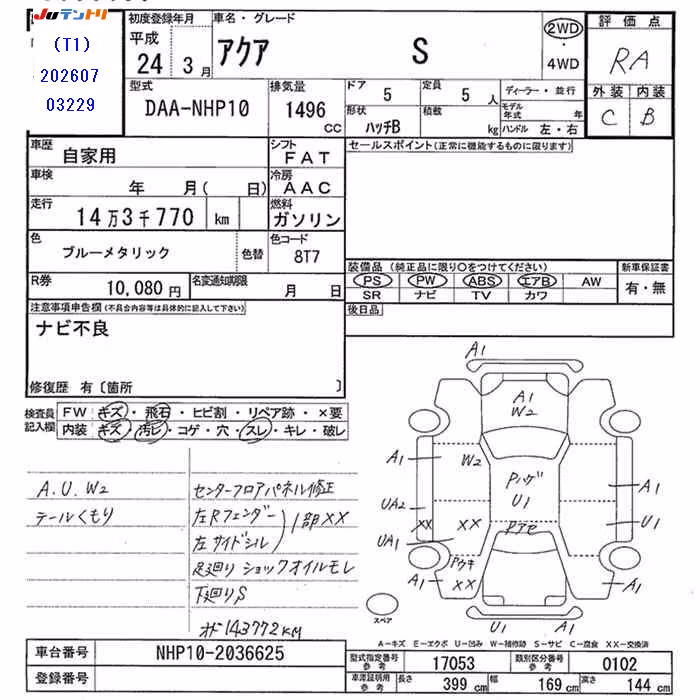 Juテントリ
(T1)
202607
03229
初度登録年月
平成
24 3月
車名・グレード
アクア S
2WD
・
4WD
評価点
RA
外装 内装
C B
型式
DAA-NHP10
排気量
1496
CC
ドア
5
定員
5 人
形状
ハッチB
積載
kg
ディーラー・並行
モデル年式 年
ハンドル 左・右
車歴
自家用
シフト
FAT
車検
年 月( 日)
冷房
AAC
走行
14万3千770 km
燃料
ガソリン
色
ブルーメタリック
色替
色コード
8T7
R券
10,080円
名変通知期限
月 日
セールスポイント(正常に機能するものに限ります)
装備品(純正品に限り○をつけてください)
PS PW ABS エアB AW
SR ナビ TV カワ
新車保証書
有・無
後日品
注意事項申告欄(不具合内容等は具体的に記入して下さい)
ナビ不良
修復歴 有〔箇所 〕
検査員記入欄
FW キズ・飛石・ヒビ割・リペア跡・×要
内装 キズ・汚ビ・コゲ・穴・スレ・キレ・破レ
A.U.W2
テールくもり
センターフロアパネル修正
左Rフェンダー
左サイドシル
1部XX
足廻り ショックオイルモレ
下廻りS
才ド143772KM
A1
A1
W2
A1
W2
Pハゲ
U1
A1
UA2
XX
XX
U1
UA1
Pアセ
Pウキ
A1
XX
A1
U1
A1
スペア
A-キズ E-エクボ U-凹み W-補修跡 S-サビ C-腐食 XX-交換済
車台番号
NHP10-2036625
登録番号
型式指定番号
参考
17053
類別区分番号
参考
0102
車庫証明用
参考
長さ
399 cm
幅
169 cm
高さ
144 cm